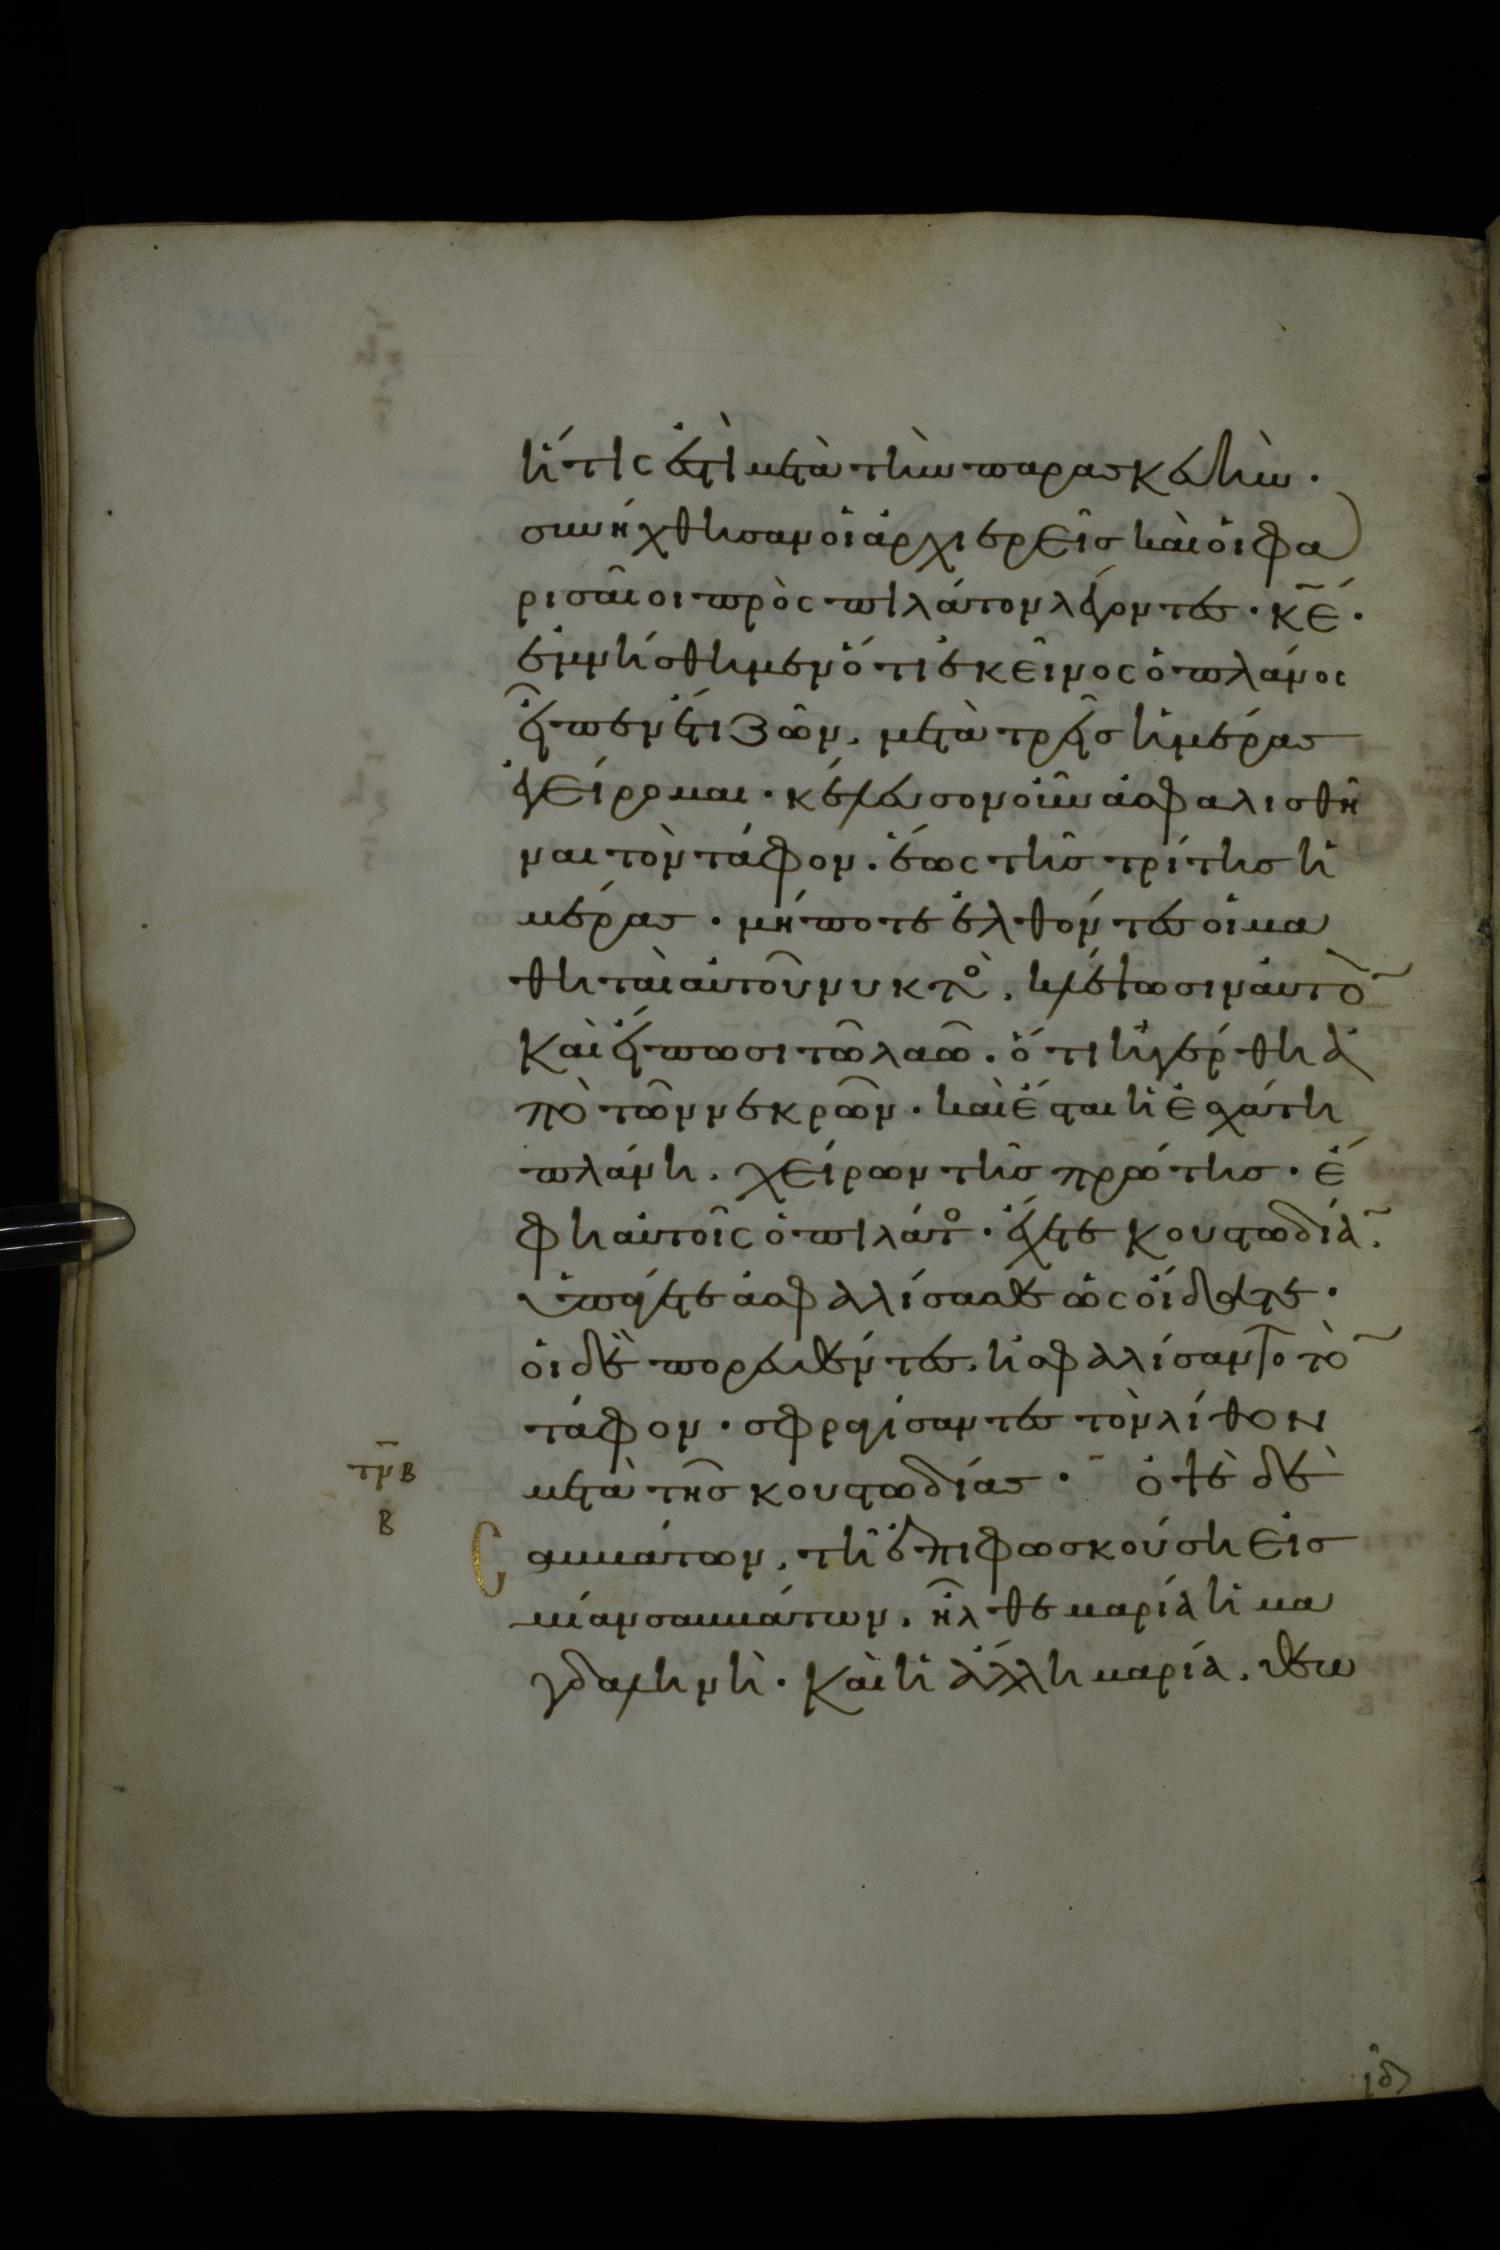 ἥτις ἐστὶ μετὰ τὴν παρασκευὴν·
συνήχθησαν οἱ ἀρχιερεῖς καὶ οἱ φα
ρισαῖοι πρὸς πιλάτον λέγοντες· κ̅ε̅·
ἐμνήσθημεν ὅτι ἐκεῖνος ὁ πλάνος
εἶπεν ἔτι ζῶν, μετὰ τρεῖς ἡμέρας
ἐγείρομαι· κέλευσον οὖν ἀσφαλισθῆ
ναι τὸν τάφον. ἕως τῆς τρίτης ἡ
μέρας· μήποτε ἐλθόντες οἱ μα
θηταὶ αὐτοῦ νυκτὸ, κλέψωσιν αὐτὸ̅
καὶ εἴπωσι τῶ λαῶ. ὅτι ἠγέρθη ἀ
πὸ τῶν νεκρῶν· καὶ ἔσται ἡ ἐσχάτη
πλάνη. χείρων τῆς πρώτης· ἔ
φη αὐτοῖς ὁ πιλάτο· ἔχετε κουστωδία̅.
ὑπάγετε ἀσφαλίσασθε ὡς οἴδατε·
οἱ δὲ πορευθέντες, ἠσφαλίσαντο τὸ̅
τάφον· σφραγίσαντες τὸν λίθον
μετὰ τῆς κουστωδίας· ὀψὲ δὲ
τ̅ν̅β
β
σαββάτων, τῆ ἐπιφωσκούση εἰς
μίαν σαββάτων, ἦλθε μαρία ἡ μα
γδαληνὴ· καὶ ἡ ἄλλη μαρία. θεω